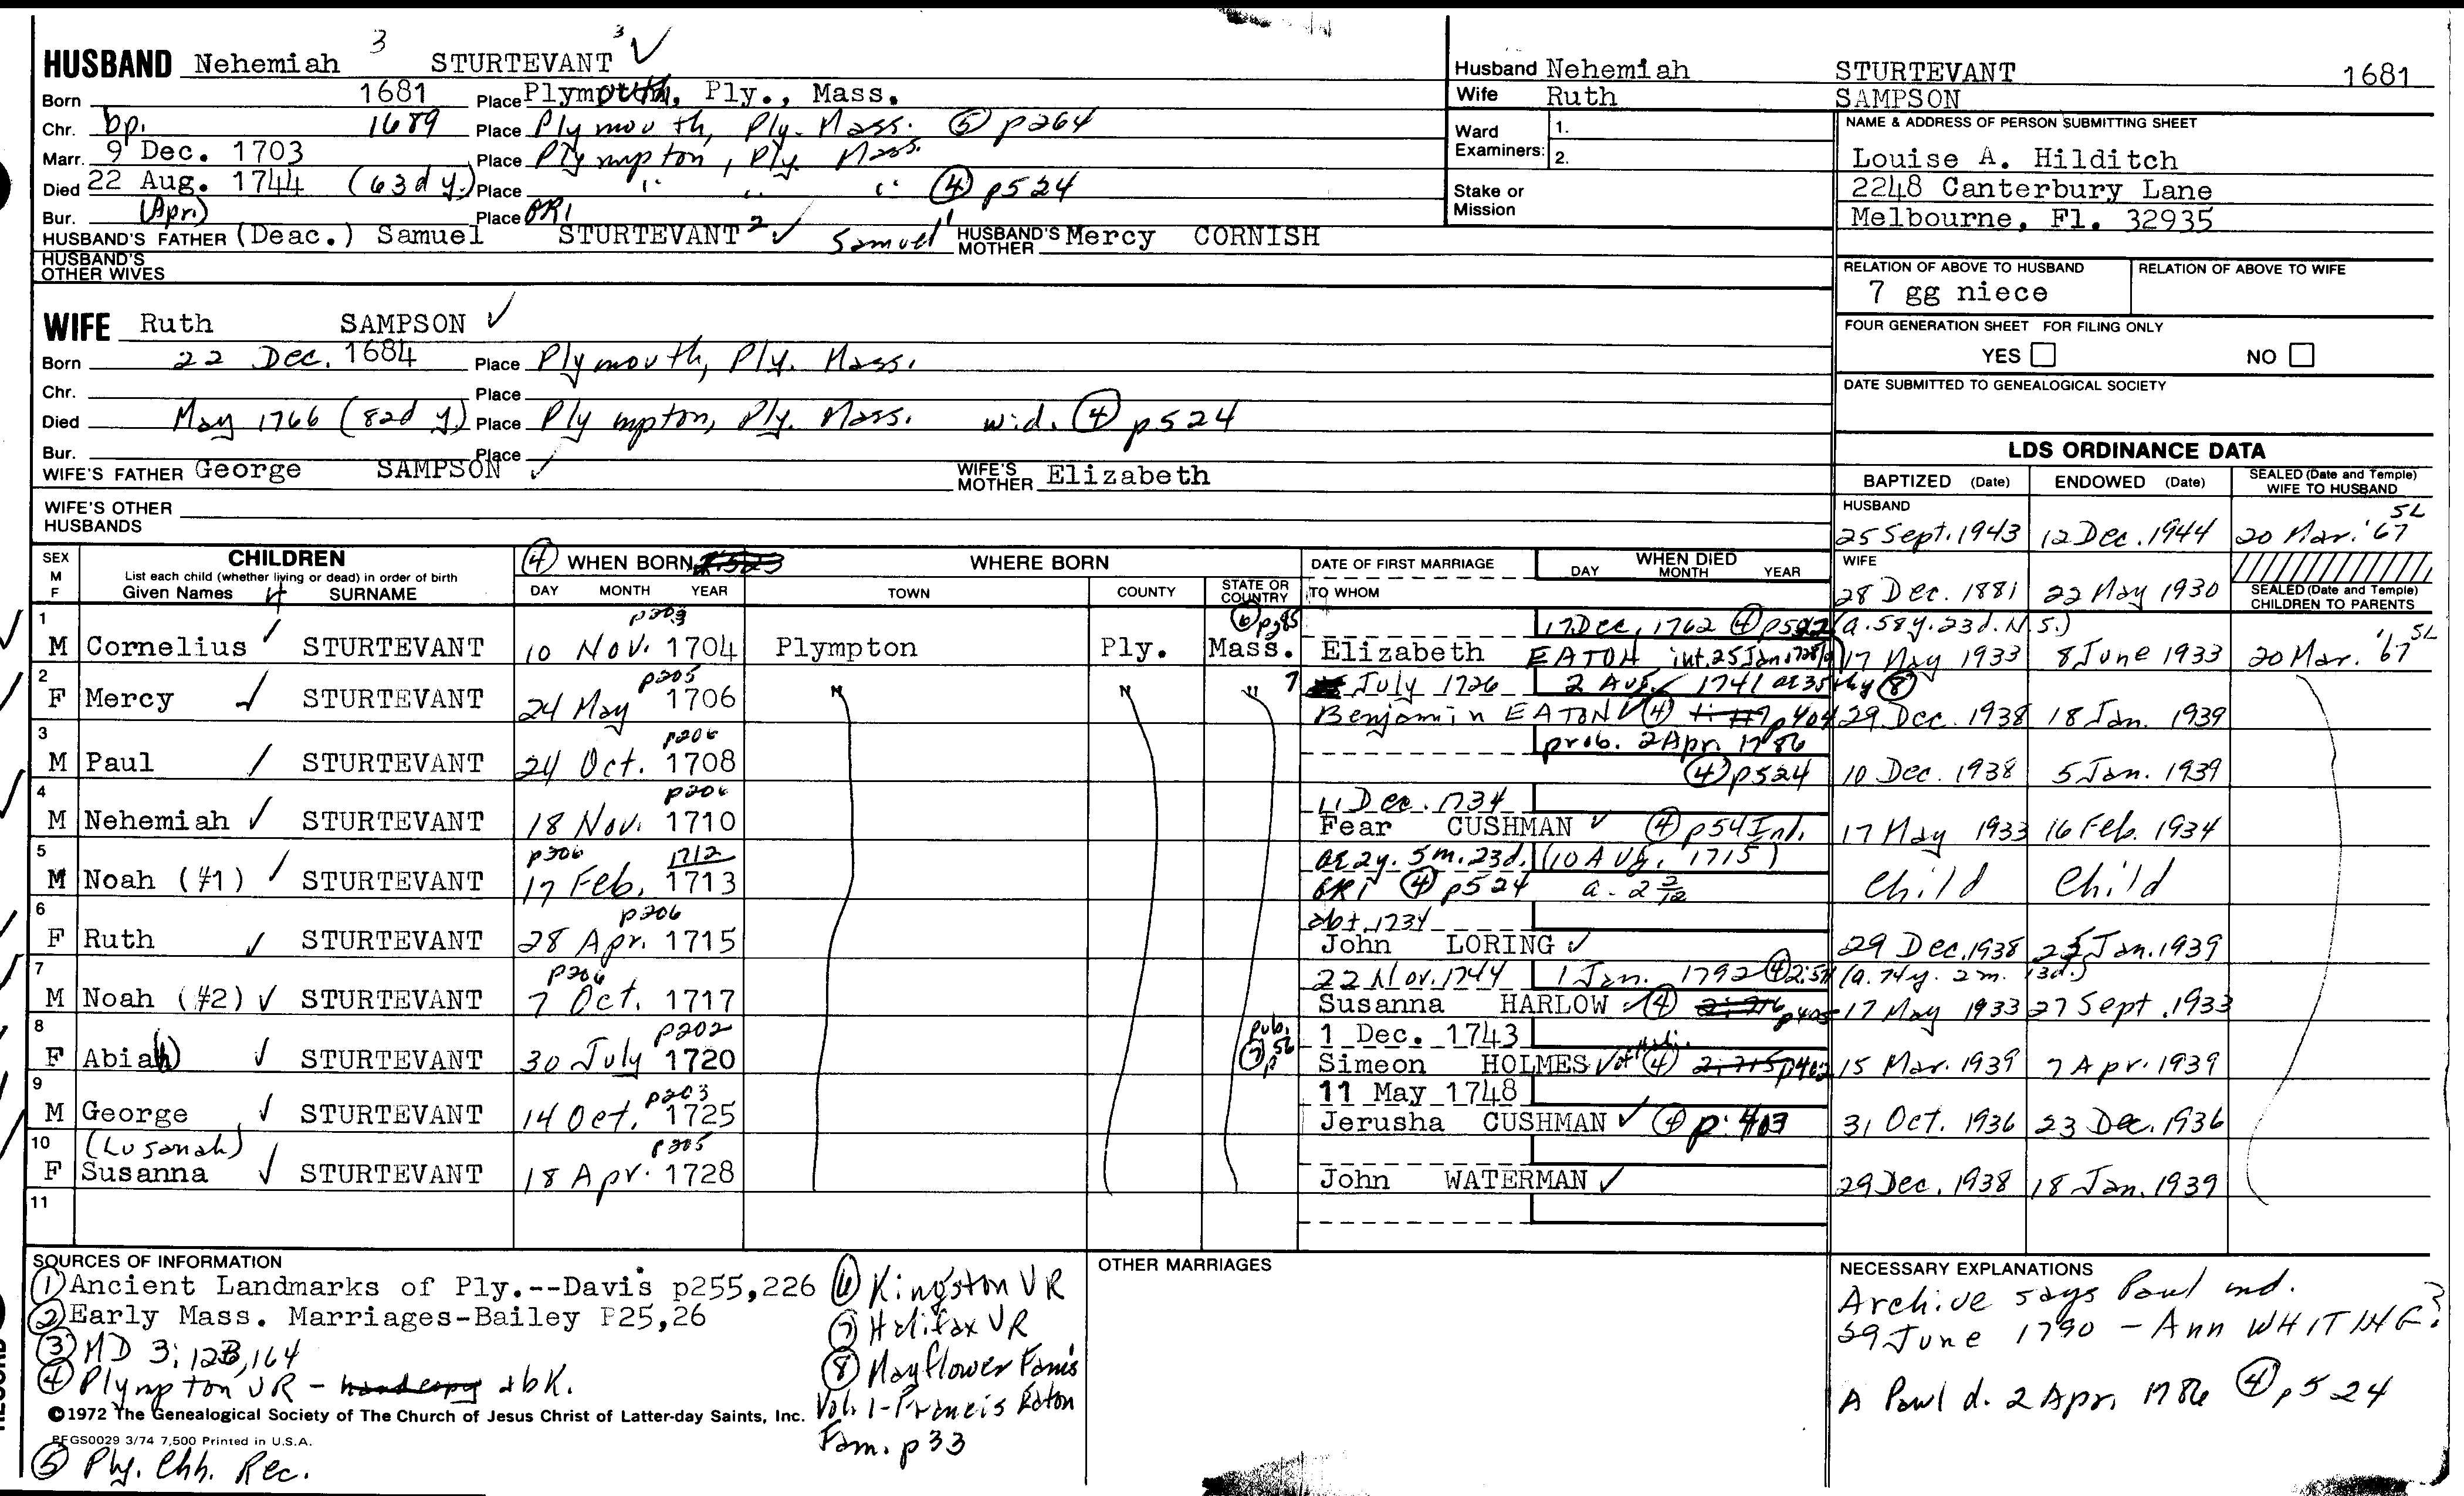 HUSBAND Nehemiah 3 STURTEVANT 3 ✓
Born 1681 Place Plymouth, Ply., Mass.
Chr. bp. 1689 Place Plymouth, Ply. Mass. (5) p264
Marr. 9 Dec. 1703 Place Plympton, Ply. Mass.
Died 22 Aug. 1744 (63d y.) Place " " " (4) p524
Bur. (Apr.) Place GR1
HUSBAND'S FATHER (Deac.) Samuel STURTEVANT 2 ✓ Samuel 1 HUSBAND'S MOTHER Mercy CORNISH
HUSBAND'S OTHER WIVES
WIFE Ruth SAMPSON ✓
Born 22 Dec. 1684 Place Plymouth, Ply. Mass.
Chr. Place
Died May 1766 (82d y) Place Plympton, Ply. Mass. wid. (4) p524
Bur. Place
WIFE'S FATHER George SAMPSON ✓ WIFE'S MOTHER Elizabeth
WIFE'S OTHER HUSBANDS
Husband Nehemiah STURTEVANT 1681
Wife Ruth SAMPSON
Ward Examiners: 1.
2.
Stake or Mission
NAME & ADDRESS OF PERSON SUBMITTING SHEET
Louise A. Hilditch
2248 Canterbury Lane
Melbourne, Fl. 32935
RELATION OF ABOVE TO HUSBAND RELATION OF ABOVE TO WIFE
7 gg niece
FOUR GENERATION SHEET FOR FILING ONLY
YES NO
DATE SUBMITTED TO GENEALOGICAL SOCIETY
LDS ORDINANCE DATA
BAPTIZED (Date) ENDOWED (Date) SEALED (Date and Temple) WIFE TO HUSBAND
HUSBAND
25 Sept. 1943 12 Dec. 1944 20 Mar. '67 SL
WIFE
28 Dec. 1881 22 May 1930 SEALED (Date and Temple) CHILDREN TO PARENTS
SEX M F CHILDREN List each child (whether living or dead) in order of birth Given Names SURNAME
(4) WHEN BORN DAY MONTH YEAR
WHERE BORN TOWN COUNTY STATE OR COUNTRY
DATE OF FIRST MARRIAGE TO WHOM WHEN DIED DAY MONTH YEAR
1 p203 (6) p285 17 Dec. 1762 (4) (a. 58 y. 23 d. N.S.)
M Cornelius ✓ STURTEVANT 10 Nov. 1704 Plympton Ply. Mass. Elizabeth EATON int. 25 Jan. 17 May 1933 8 June 1933 20 Mar. '67 SL
2 p205 7 July 1726 2 Aug. 1741 (8)
F Mercy ✓ STURTEVANT 24 May 1706 " " " Benjamin EATON ✓ (4) p404 29 Dec. 1938 18 Jan. 1939
3 p206 prob. 2 Apr. 1786
M Paul ✓ STURTEVANT 24 Oct. 1708 (4) p524 10 Dec. 1938 5 Jan. 1939
4 p206 11 Dec. 1734
M Nehemiah ✓ STURTEVANT 18 Nov. 1710 Fear CUSHMAN ✓ (4) p54 Int. 17 May 1933 16 Feb. 1934
5 p206 1712 ae 2y. 5m. 23d. (10 Aug. 1715)
M Noah (#1) ✓ STURTEVANT 17 Feb. 1713 GR1 (4) p524 a. 2 2/12 Child Child
6 p206 abt. 1734
F Ruth ✓ STURTEVANT 28 Apr. 1715 John LORING ✓ 29 Dec. 1938 Jan. 1939
7 p206 22 Nov. 1744 1 Jan. 1792 (4) (a. 74y. 2m. 13d.)
M Noah (#2) ✓ STURTEVANT 7 Oct. 1717 Susanna HARLOW ✓ (4) p405 17 May 1933 27 Sept. 1933
8 p202 pub. (7) p 56 1 Dec. 1743
F Abia(h) ✓ STURTEVANT 30 July 1720 Simeon HOLMES ✓ (4) p402 15 Mar. 1939 7 Apr. 1939
9 p203 11 May 1748
M George ✓ STURTEVANT 14 Oct. 1725 Jerusha CUSHMAN ✓ (4) p. 403 31 Oct. 1936 23 Dec. 1936
10 (Lusanah) p205
F Susanna ✓ STURTEVANT 18 Apr. 1728 John WATERMAN ✓ 29 Dec. 1938 18 Jan. 1939
11
SOURCES OF INFORMATION
(1) Ancient Landmarks of Ply.--Davis p255,226
(2) Early Mass. Marriages-Bailey P25,26
(3) MD 3; 123,164
(4) Plympton VR - hardcopy & bk.
©1972 The Genealogical Society of The Church of Jesus Christ of Latter-day Saints, Inc.
PFGS0029 3/74 7,500 Printed in U.S.A.
(5) Ply. Chh. Rec.
(6) Kingston VR
(7) Halifax VR
(8) Mayflower Fams
Vol. 1-Francis Eaton
Fam. p33
OTHER MARRIAGES
NECESSARY EXPLANATIONS
Archive says Paul md.
29 June 1790 - Ann WHITING?
A Paul d. 2 Apr. 1786 (4) p524